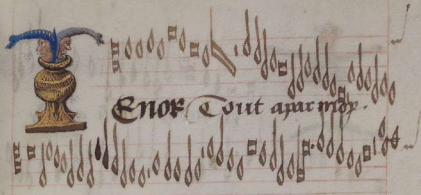 Tenor Tout apar moy.